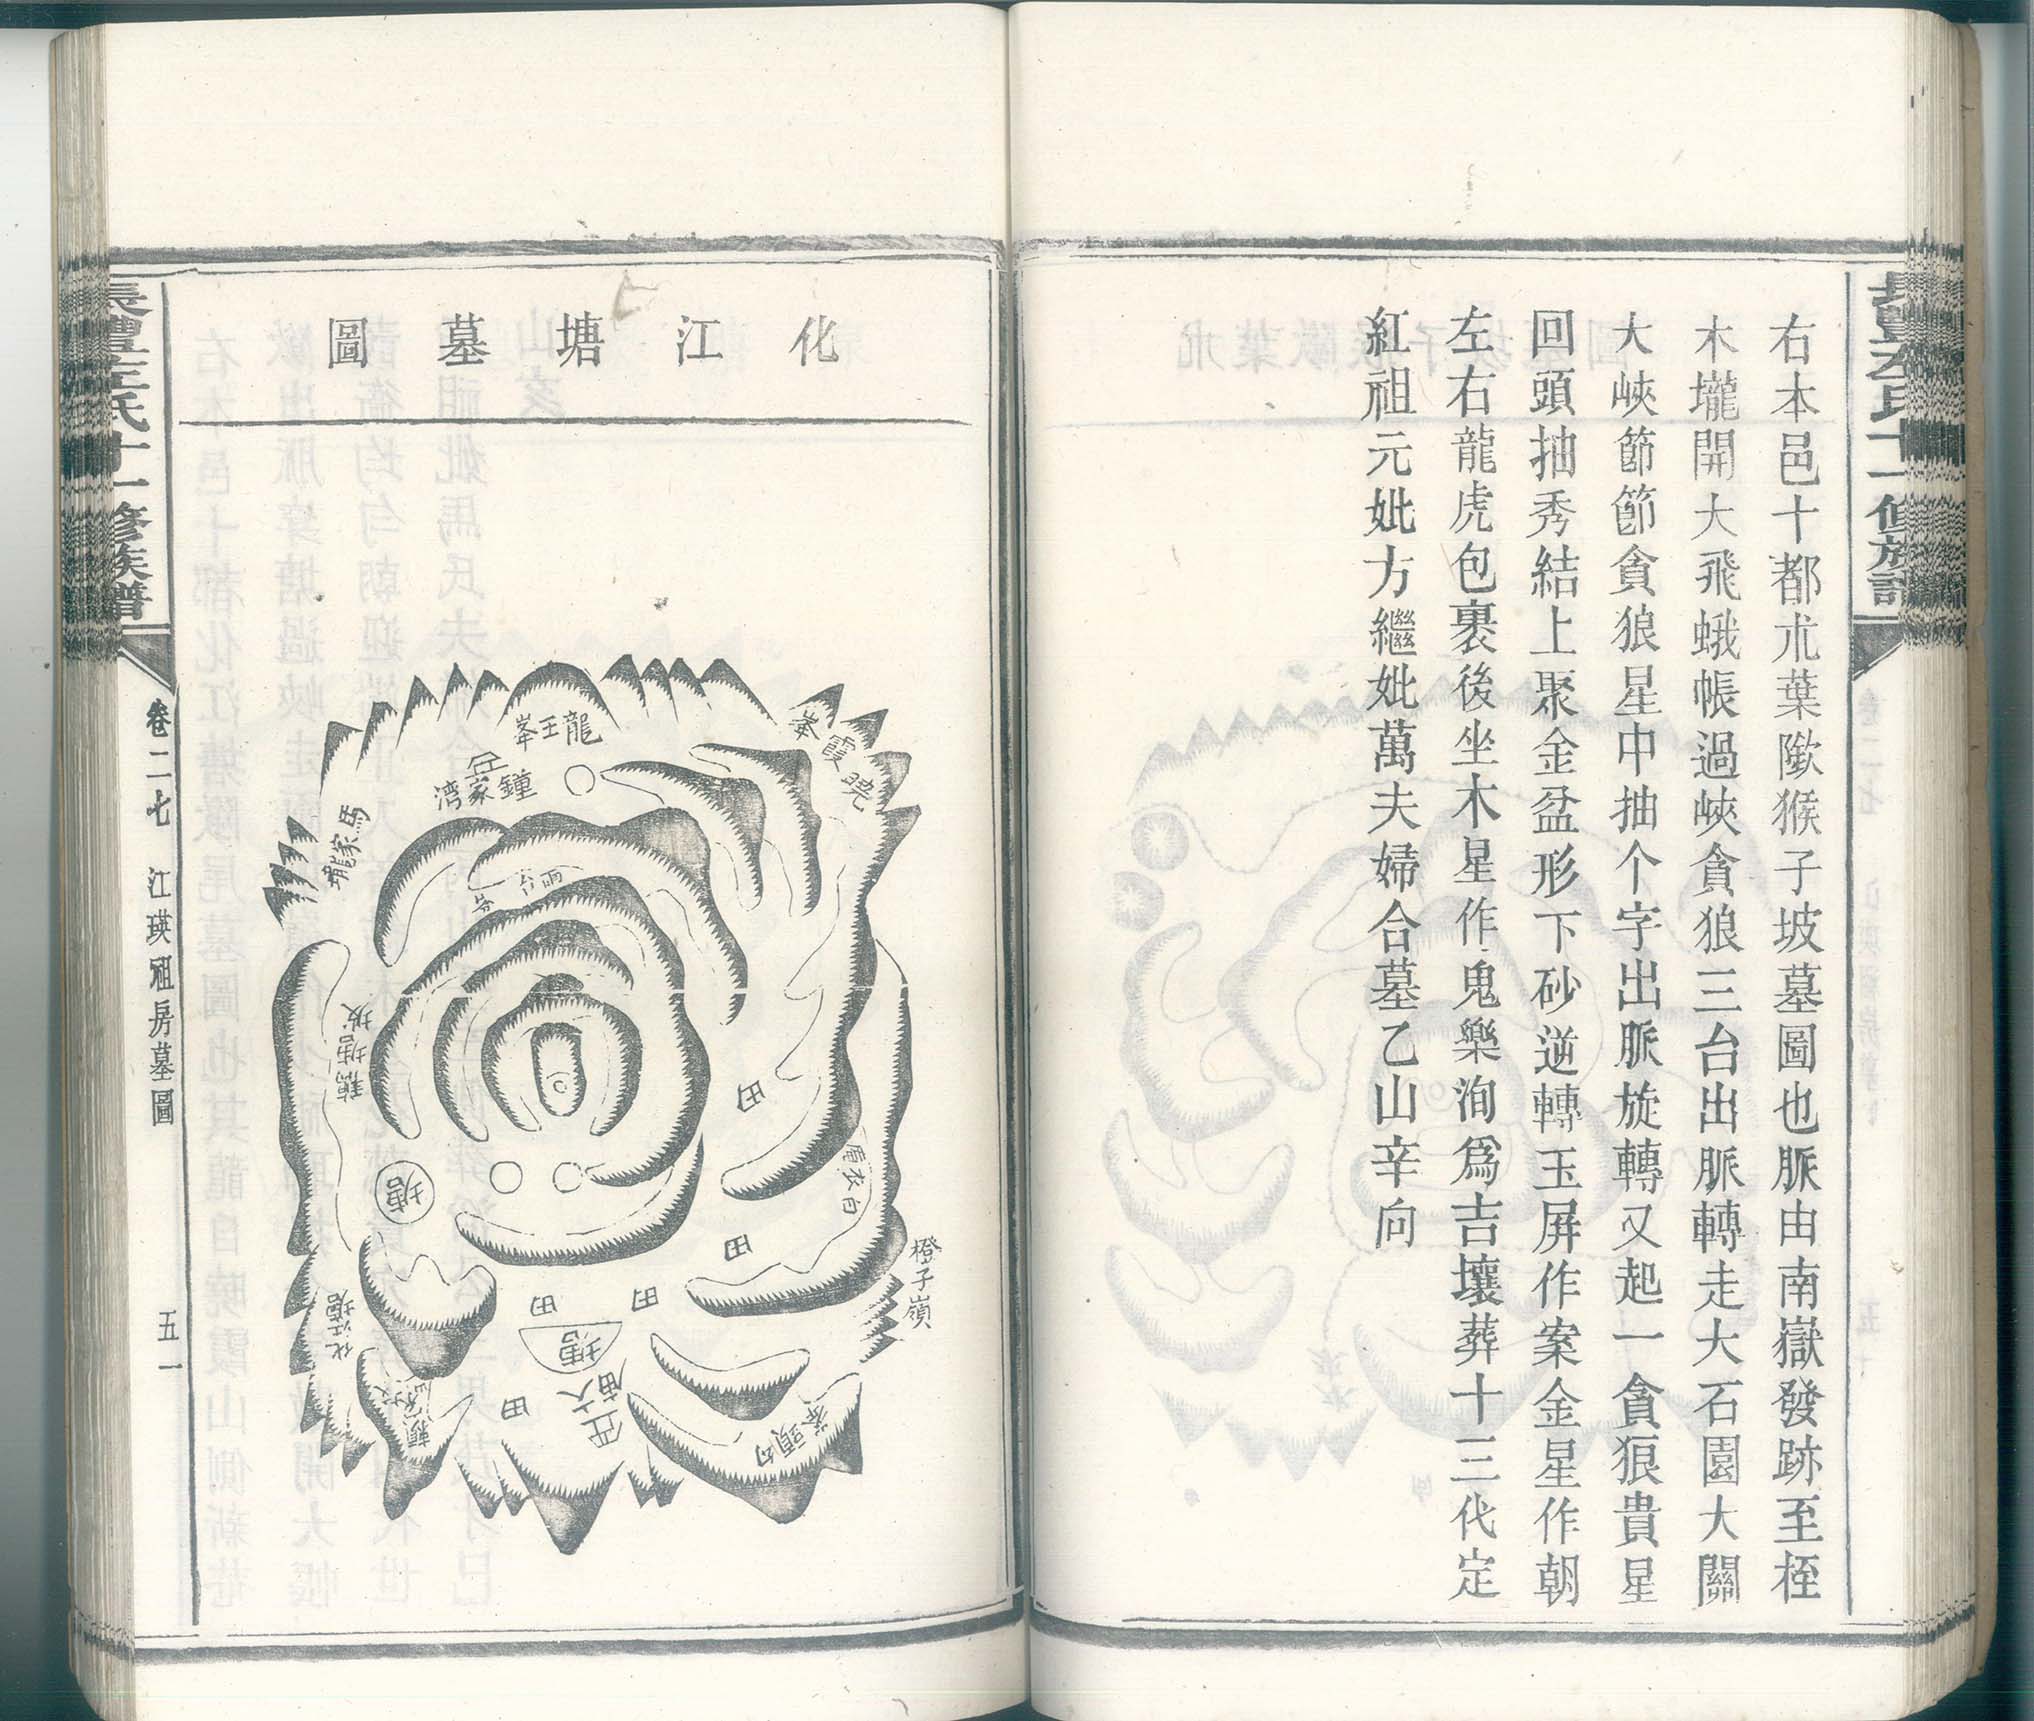 右本邑十都朮葉歐猴子坡墓圖也脈由南嶽發跡至桎
木壠開大飛蛾帳過峽貪狼三台出脈轉走大石園大關
大峽節節貪狼星中抽个字出脈旋轉又起一貪狼貴星
回頭抽秀結上聚金盆形下砂逆轉玉屏作案金星作朝
左右龍虎包裹後坐木星作鬼樂洵爲吉壤葬十三代定
紅祖元妣方繼妣萬夫婦合墓乙山辛向
化江塘墓圖
龍王峯
曉霞峯
鐘家丘湾
馬家壠
塘坡
塘
田
白衣庵
橙子嶺
田
田
田
塘
田
大庙丘
化江塘
氏十一修族譜
卷二七
江瑛祖房墓圖
五一